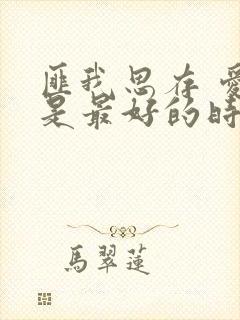 匪我思存 愛
是最好的時
馬翠蓮